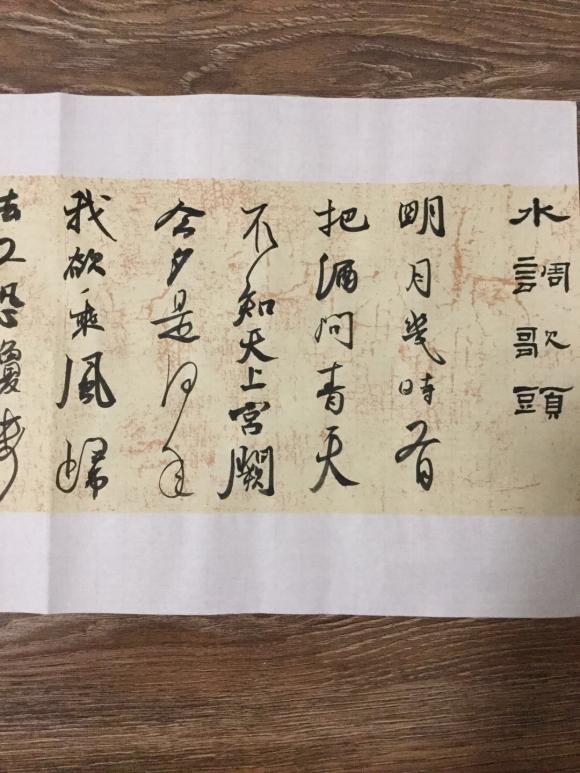 水調歌頭
明月幾時有
把酒問青天
不知天上宮闕
今夕是何年
我欲乘風歸
去又恐瓊